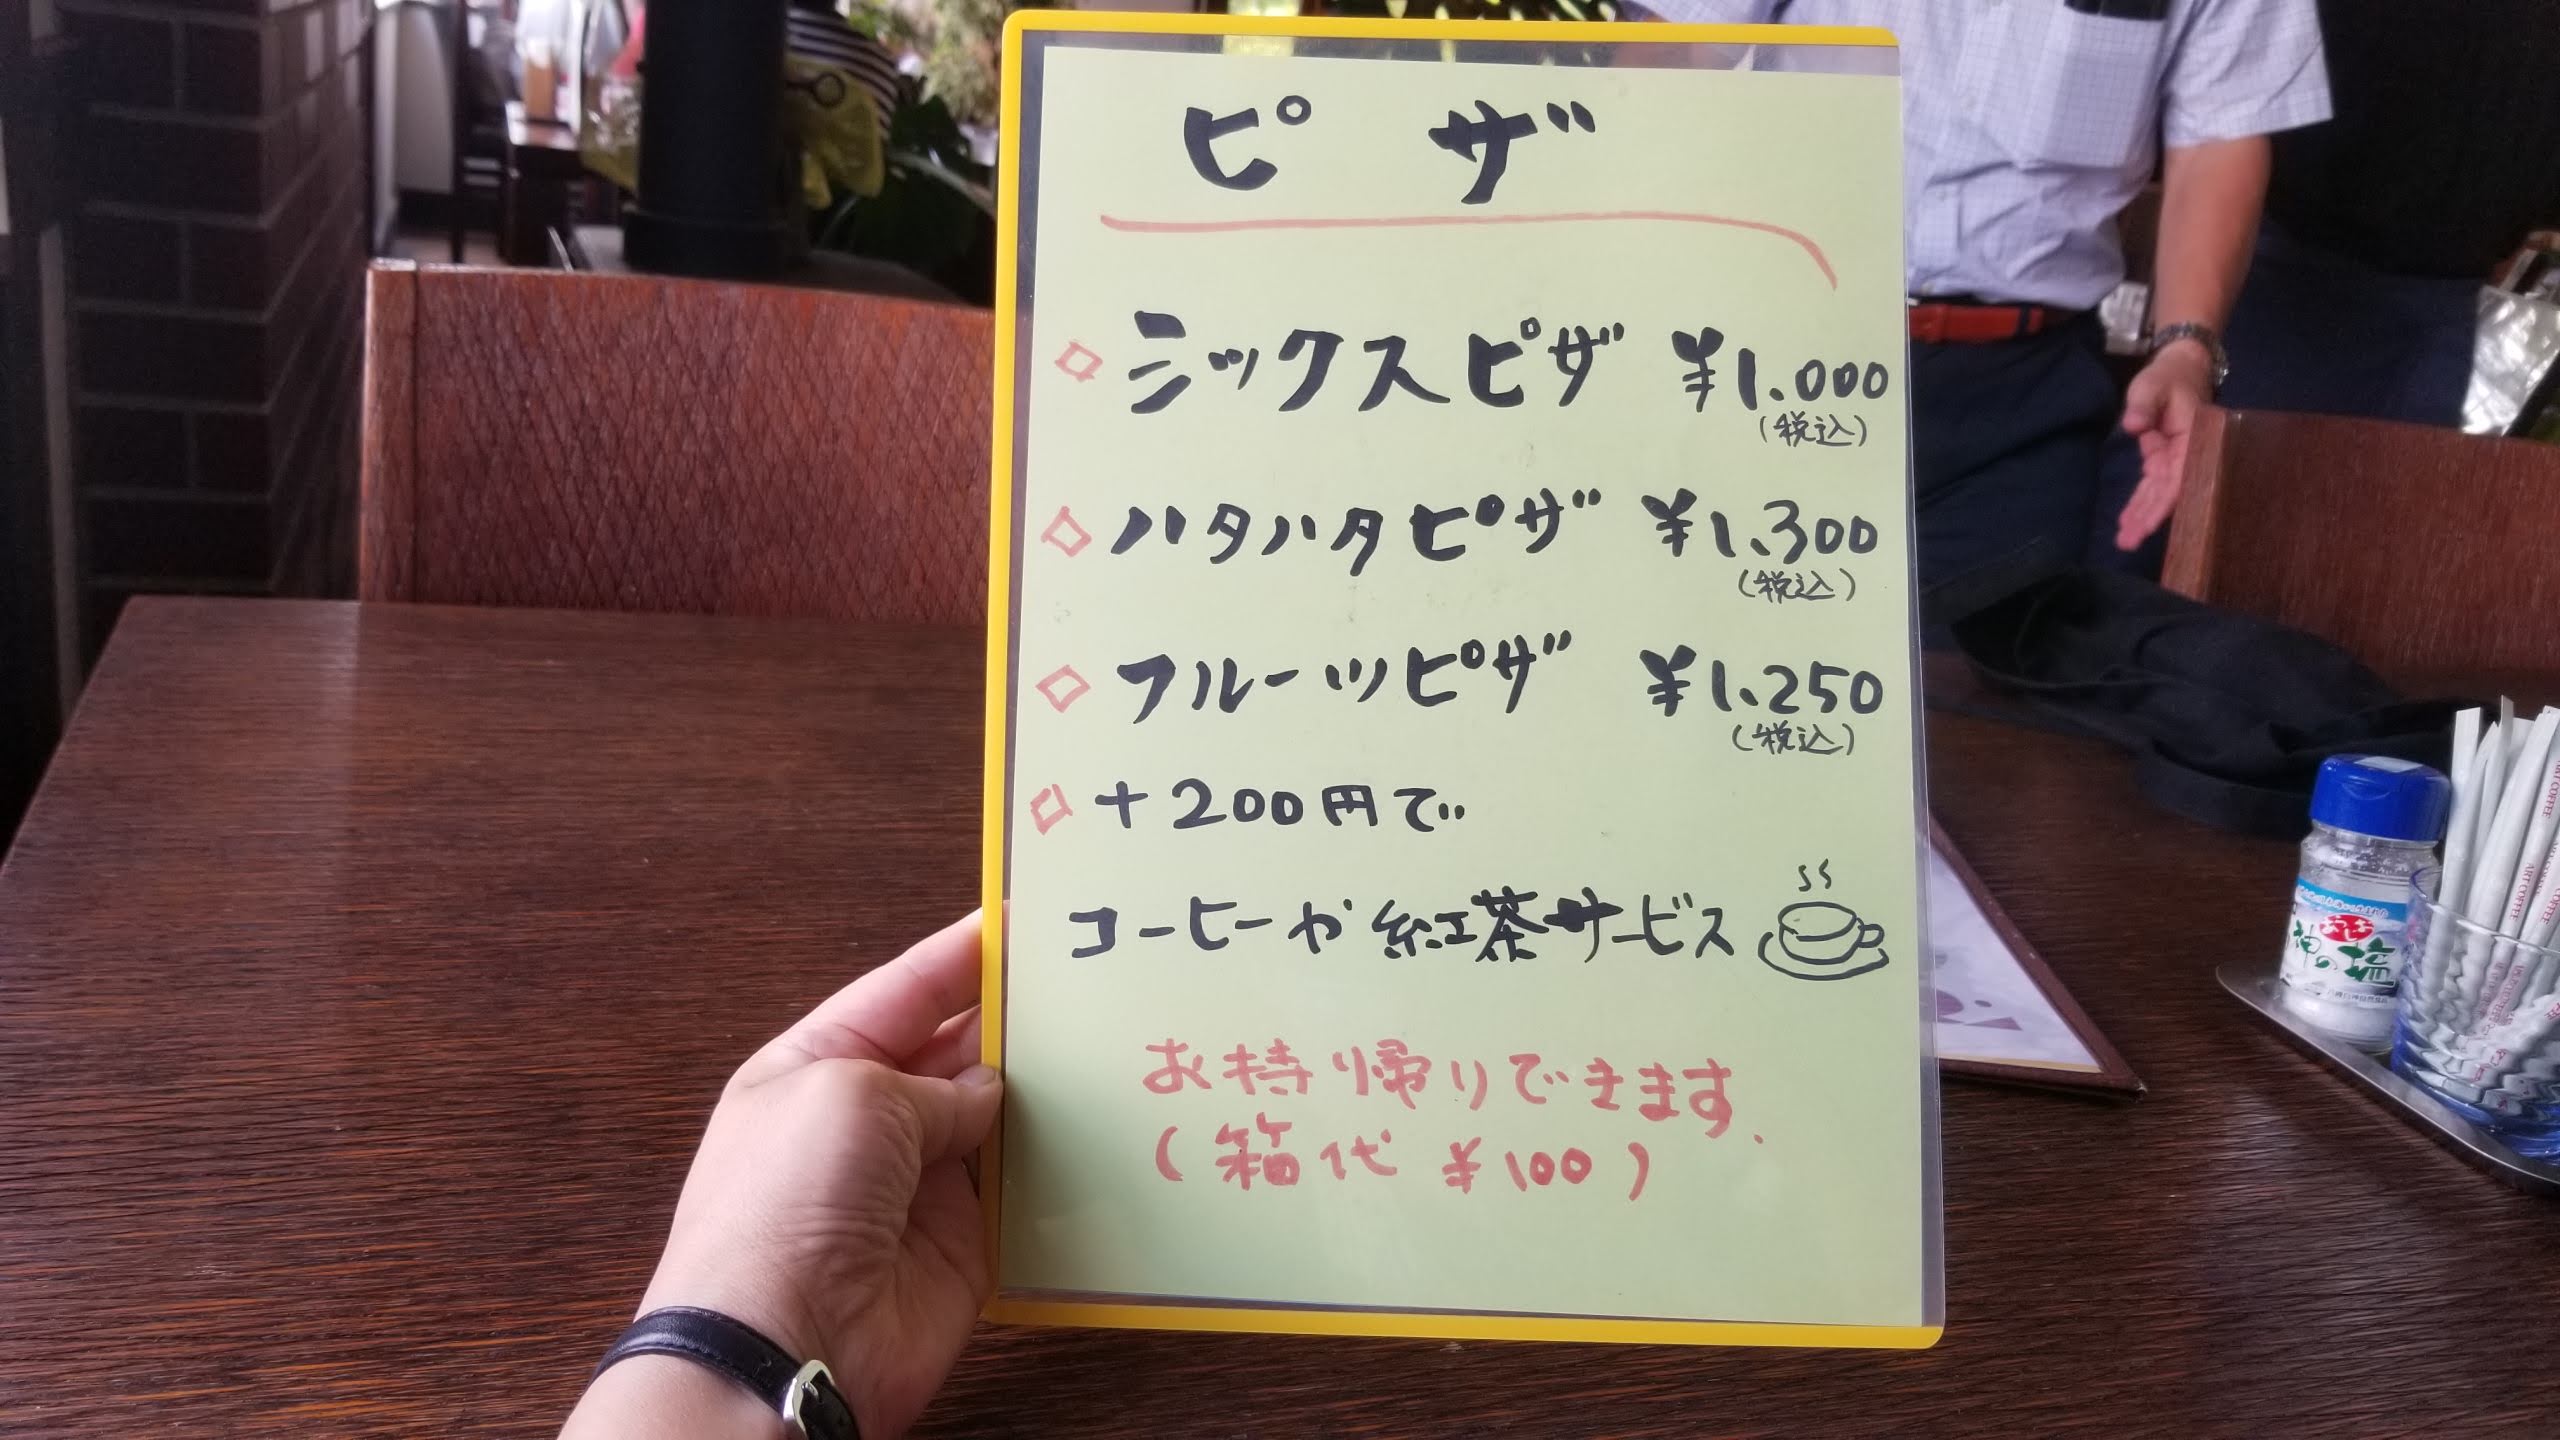 ピザ
ミックスピザ ¥1.000
(税込)
ハタハタピザ ¥1.300
(税込)
フルーツピザ ¥1.250
(税込)
+200円で
コーヒーや紅茶サービス
お持ち帰りできます.
(箱代 ¥100)
神の塩
ART COFFEE